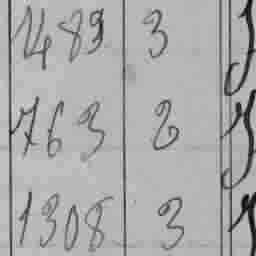 1489 3
763 2
1308 3